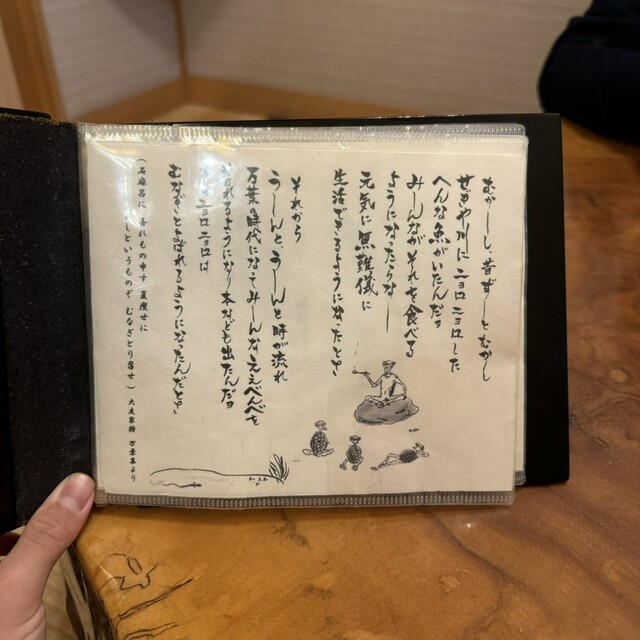 むかーしし、昔ずーとむかし
せきや川にニョロニョロした
へんな魚がいたんだョ
みーんながそれを食べる
ようになったらなー
元気に無難儀に
生活できるようになったとさ
それから
うーんと、うーんと時が流れ
万葉時代になってみーんなええべべを
きれるようになり本なども出たんだョ
ニョロニョロは
むなぎと呼ばれるようになったんだとさ
(石麻呂に 吾れもの申す 夏痩せに
しというものぞ むなぎとり召せ) 大友家持 万葉集より